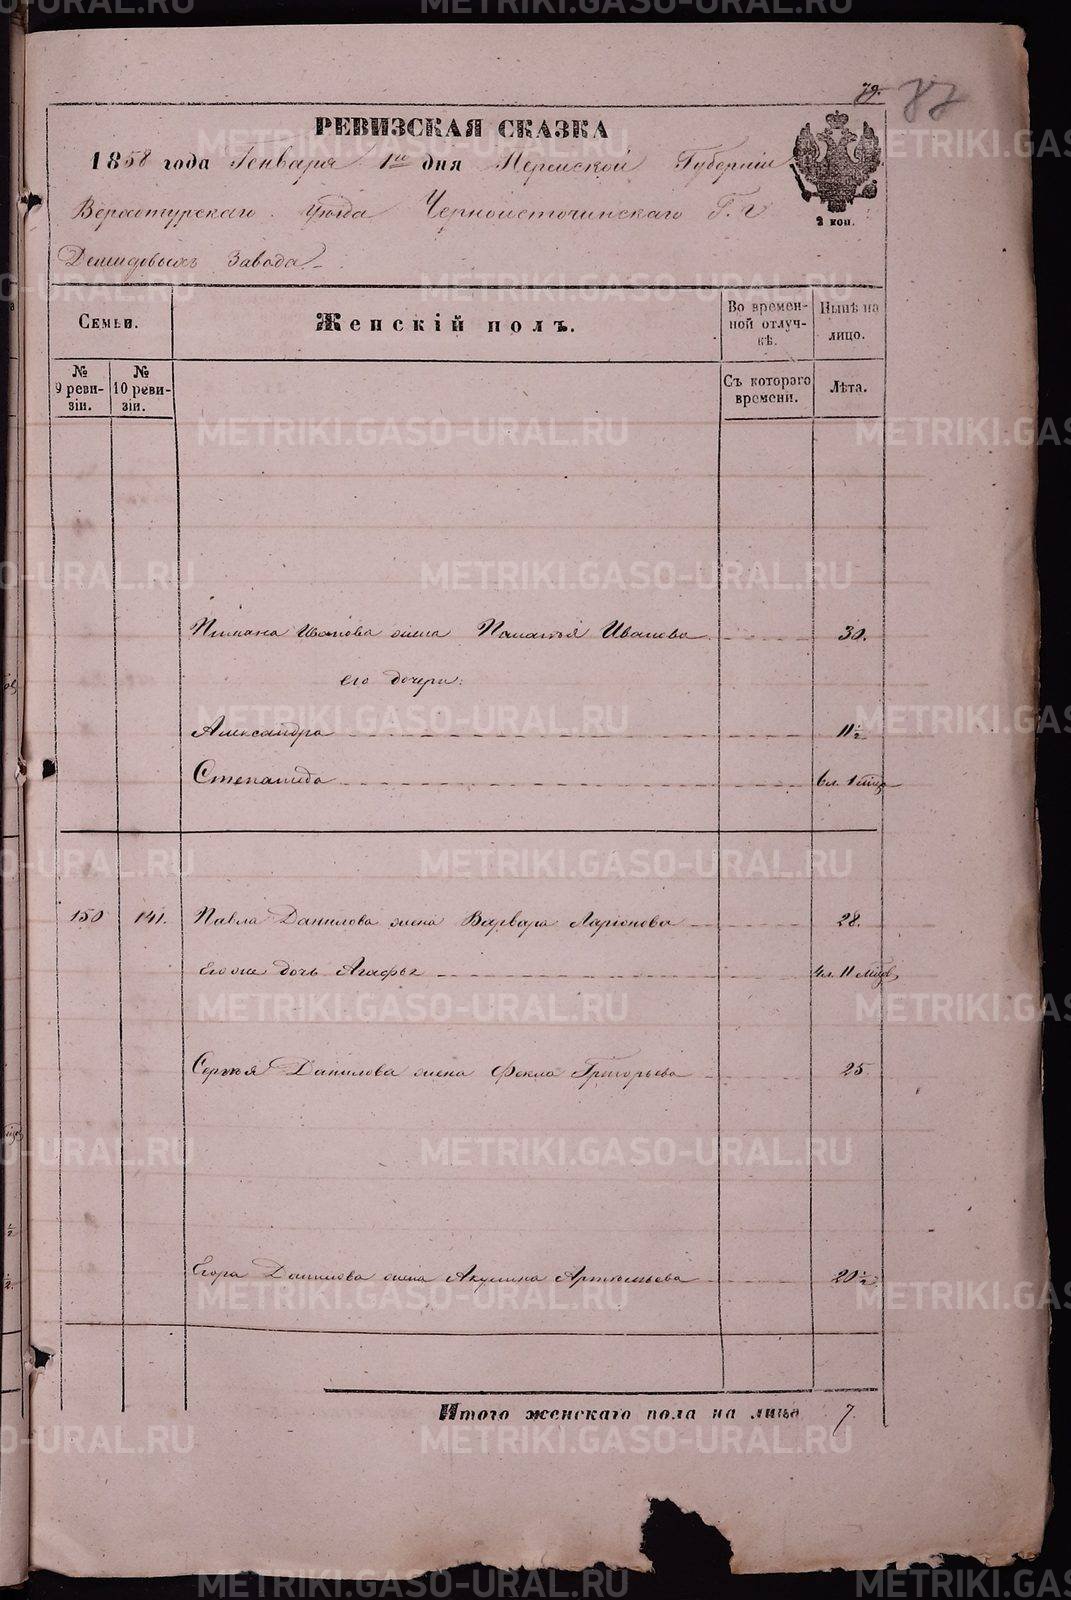 79.
87
РЕВИЗСКАЯ СКАЗКА
1858 года Генваря 1го дня Пермской Губерніи
Верхотурскаго уѣзда Черноисточинскаго Г. г
Демидовыхъ Завода
2 коп.
Семьи.
Женскій полъ.
Во времен-
ной отлуч-
кѣ.
Нынѣ на
лицо.
№
9 реви-
зіи.
№
10 реви-
зіи.
Съ котораго
времени.
Лѣта.
Иванова жена Иванова 30.
его дочери:
Александра 11½
Степанида 6 л. 1 мѣсц
150 141. Павла Данилова жена Варвара Ларіонова 28.
Его же дочь Агафья 4 л. 11 мѣсцов
Сергѣя Данилова жена Фекла Григорьева 25.
Егора Данилова жена Акулина Артемьева 20½
Итого женскаго пола на лицо 7
METRIKI.GASO-URAL.RU